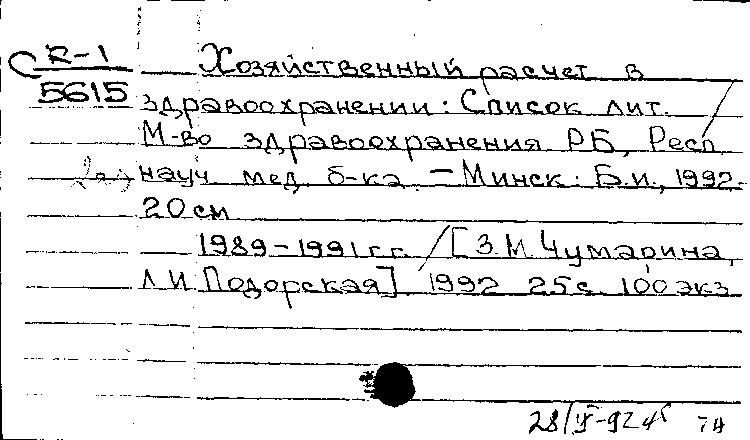 R-1
5615
Хозяйственный расчет в
здравоохранении: Список лит. /
М-во здравоохранения РБ, Респ.
науч. мед. б-ка. – Минск: Б.и., 1992.
20 см
1989-1991 г.г. / [З.М. Чумарина,
Л.И. Подорская] 1992 25с 100 экз